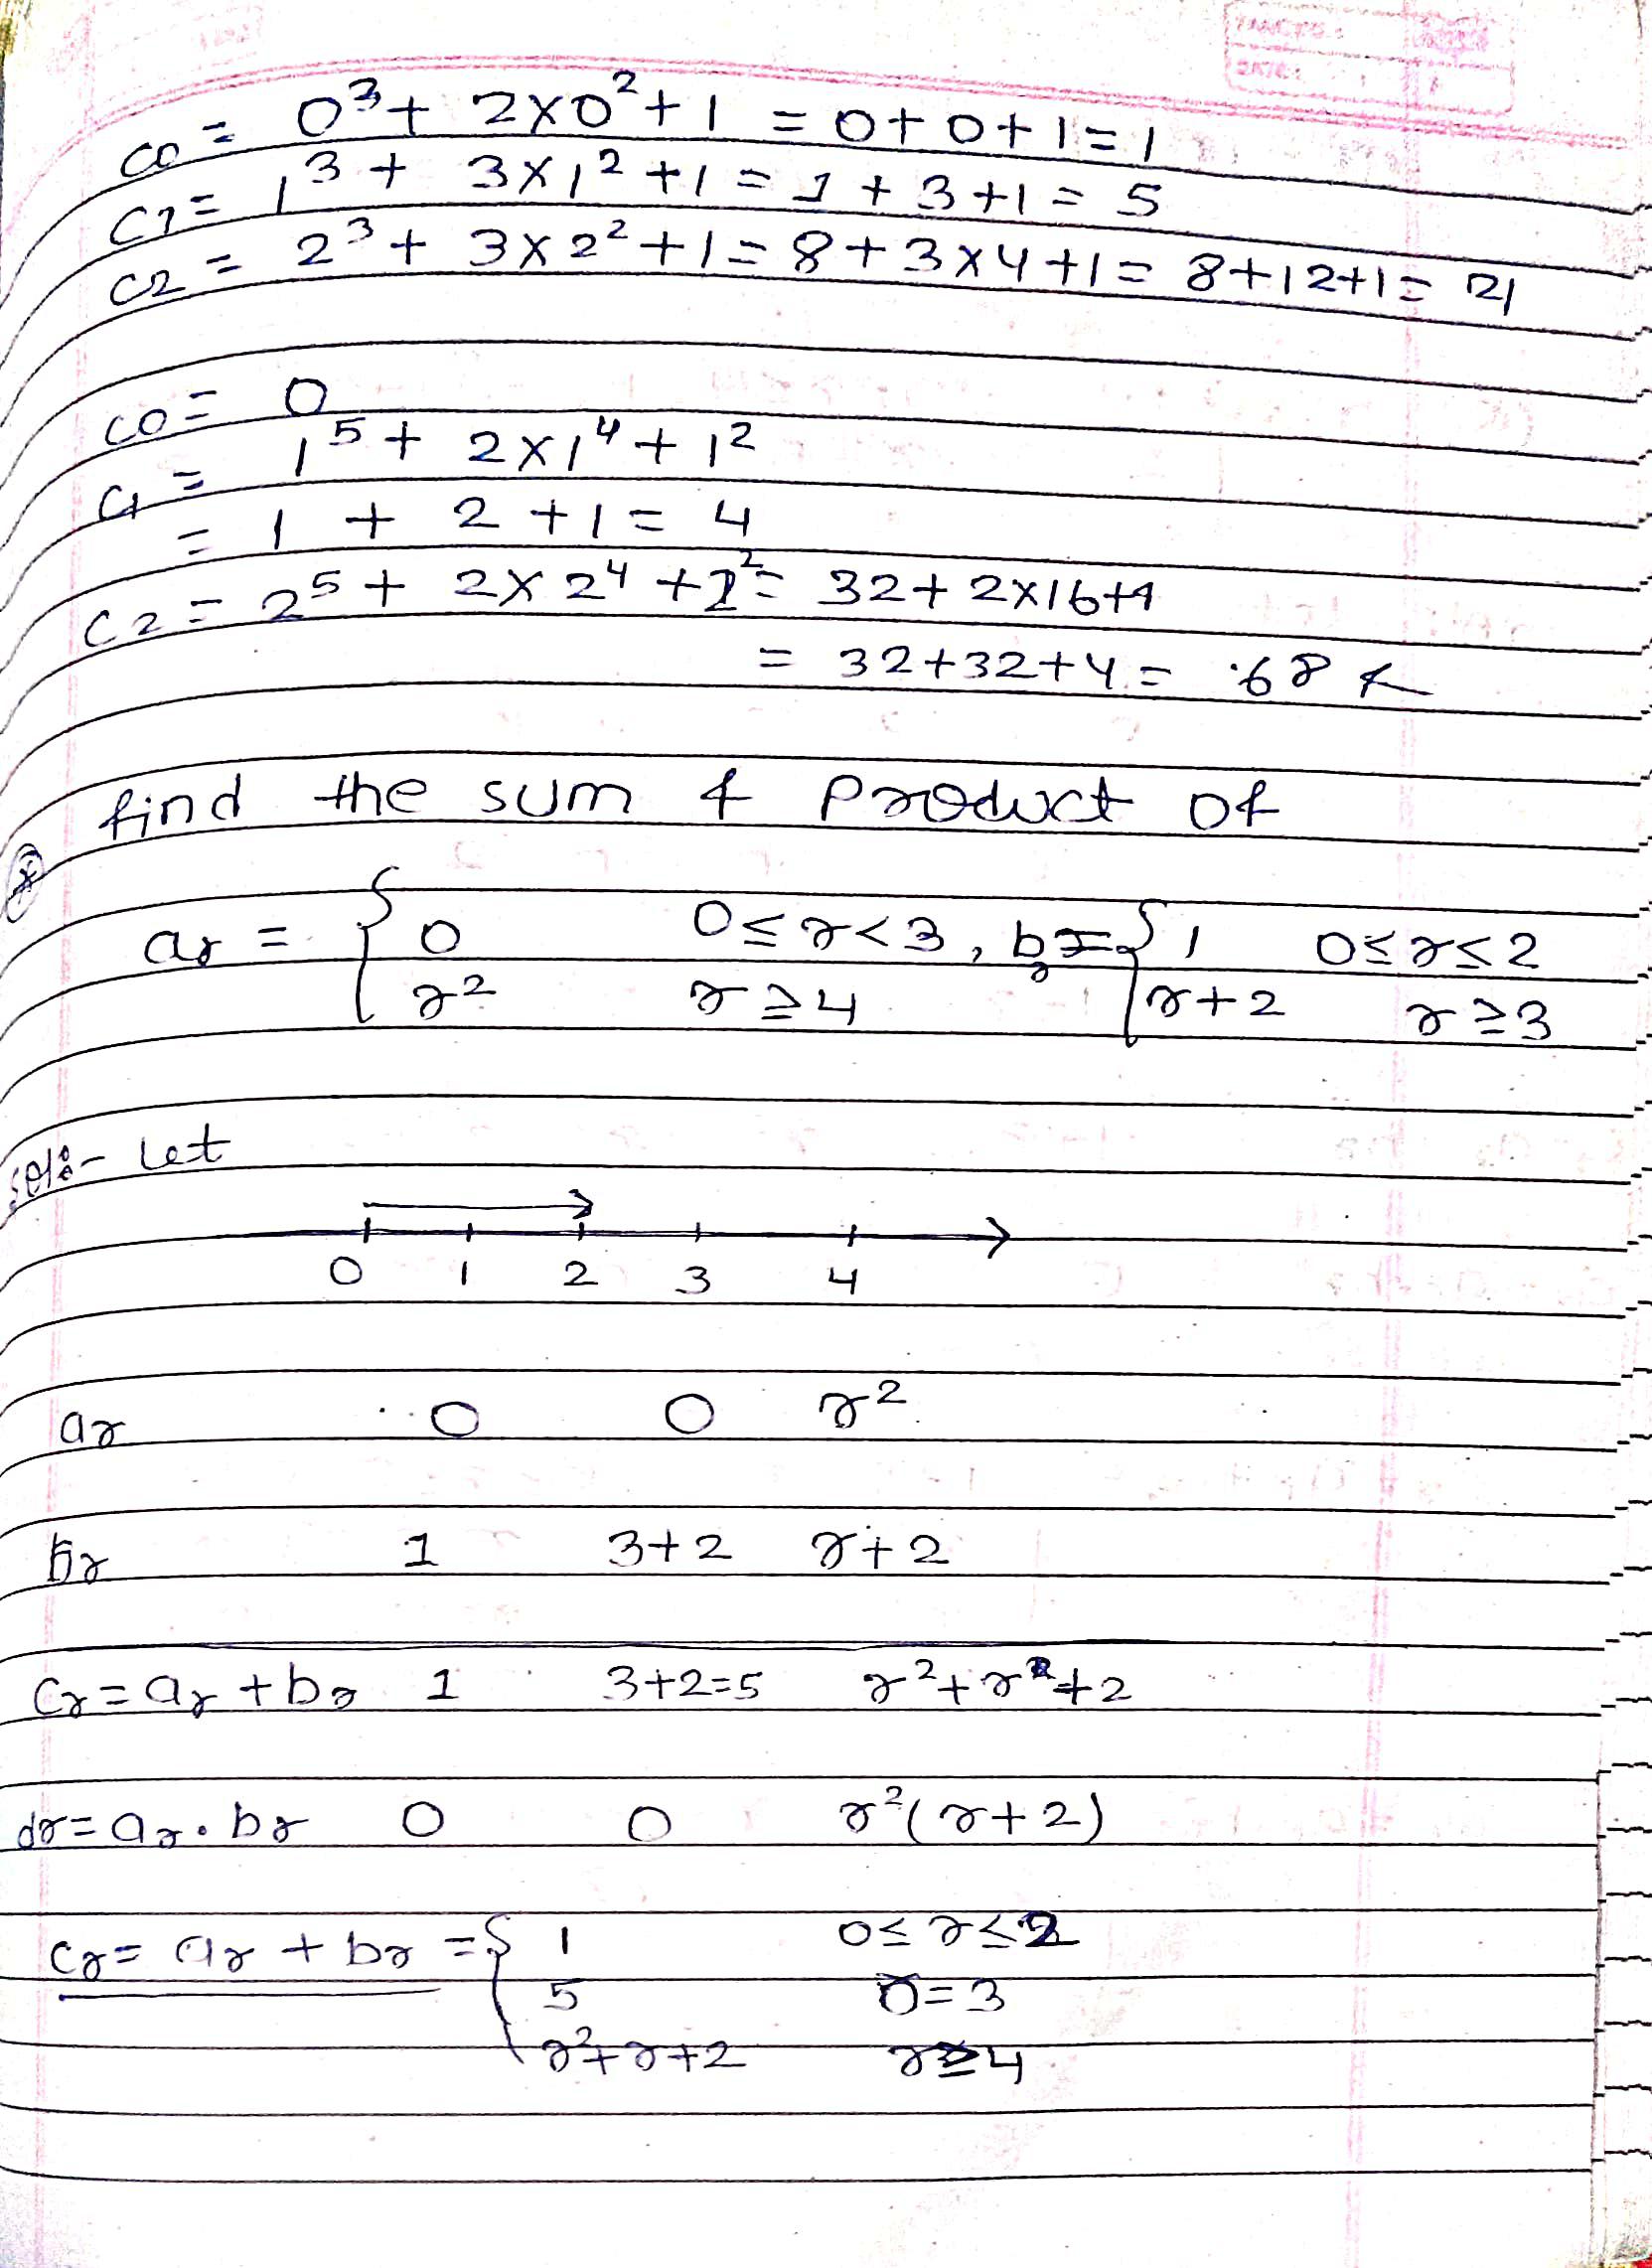 c0 = 0³ + 2×0² + 1 = 0+0+1=1
C1 = 1³ + 3×1² +1 = 1 + 3 +1 = 5
C2 = 2³ + 3×2² +1 = 8+3×4+1= 8+12+1= 21
c0 = 0
C1 = 1⁵ + 2×1⁴ + 1²
= 1 + 2 +1 = 4
C2 = 2⁵ + 2×2⁴ +2² = 32+ 2×16+4
= 32+32+4 = 68
find the sum & Product of
ar = { 0 0≤r<3, br = { 1 0≤r≤2
r² r≥4 r+2 r≥3
sol:- Let
0 1 2 3 4
ar 0 0 r²
br 1 3+2 r+2
Cr=ar+br 1 3+2=5 r²+r+2
dr=ar.br 0 0 r²(r+2)
Cr= ar + br = { 1 0≤r≤2
5 r=3
r²+r+2 r≥4